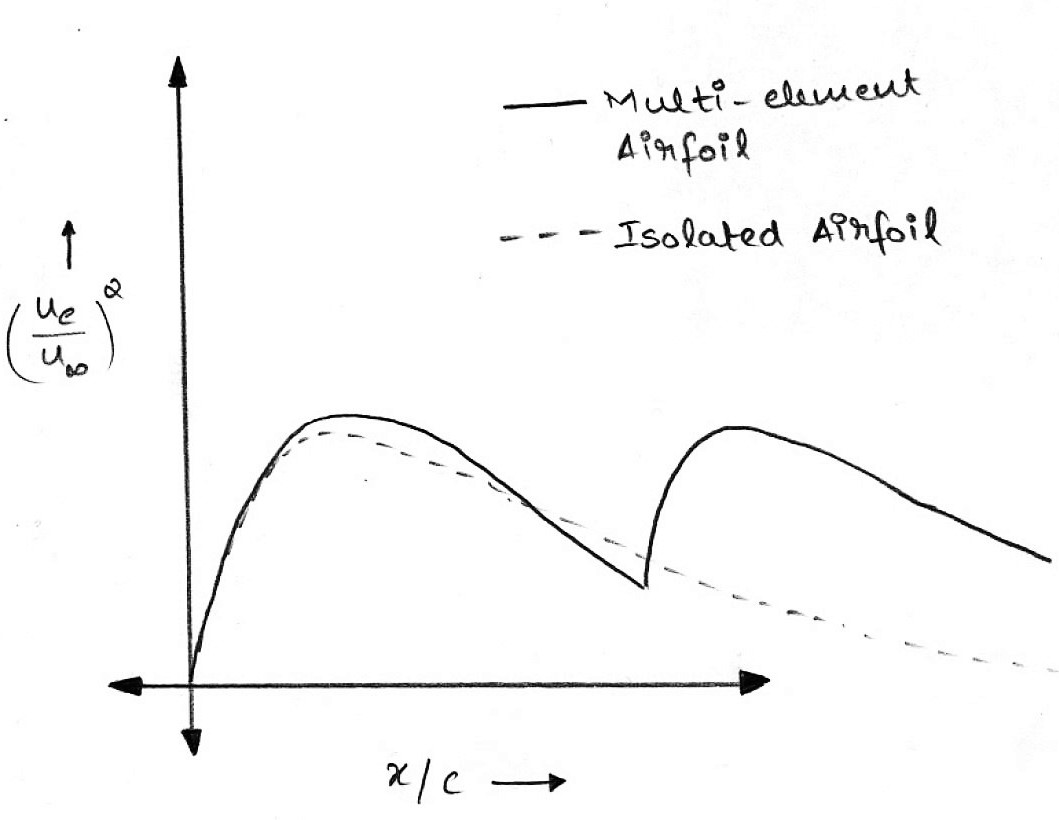 Multi-element
Airfoil
Isolated Airfoil
(ue/u∞)²
x/c